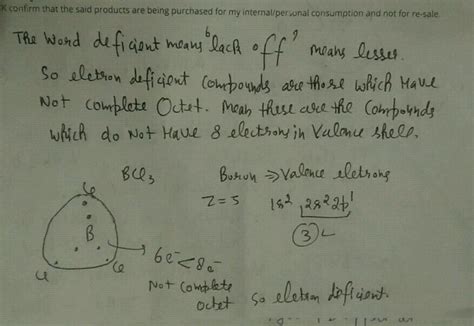 K confirm that the said products are being purchased for my internal/personal consumption and not for re-sale.
The word deficient means "lack off" means lesser.
So eletron deficient compounds are those which have
Not complete Octet. Mean these are the compounds
which do Not Have 8 electrons in Valance shell.
BCl3 Boron ⇒ Valance eletrons
Z = 5 1s² 2s² 2p¹
Cl
B
Cl Cl
3
6e⁻ < 8e⁻
Not complete
Octet
So eletron deficient.